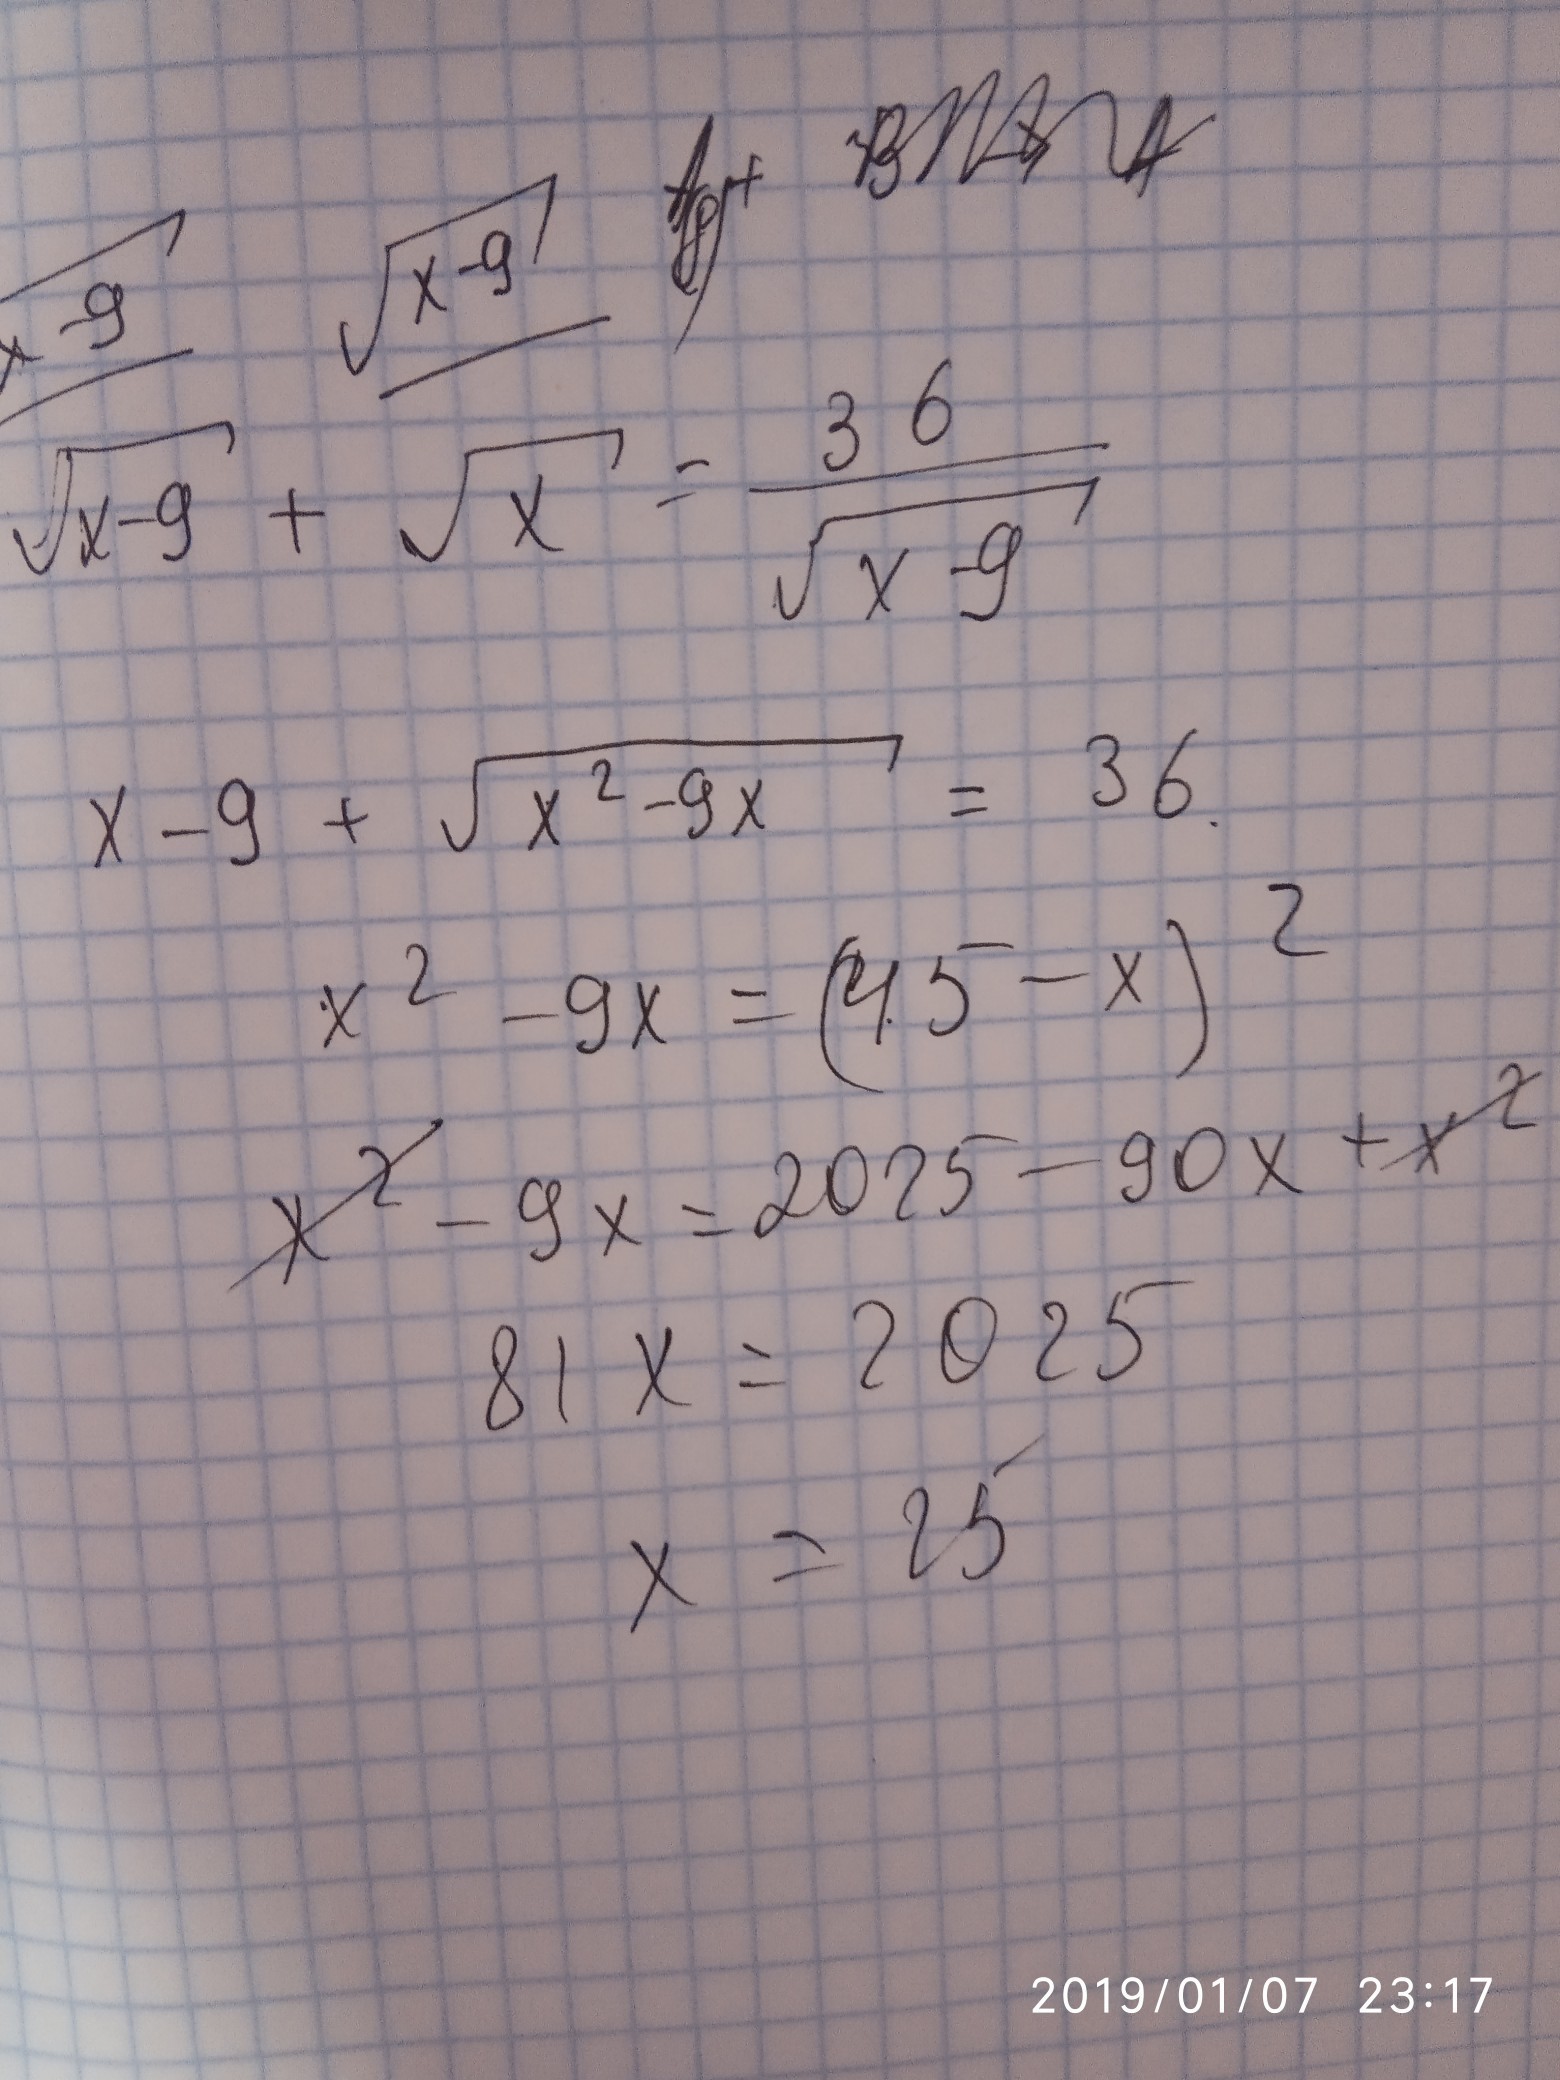 x-9 √x-9
√x-9 + √x = 36/√x-9
x-9 + √x²-9x = 36.
x² -9x = (45-x)²
x² -9x = 2025 - 90x + x²
81x = 2025
x = 25
2019/01/07 23:17